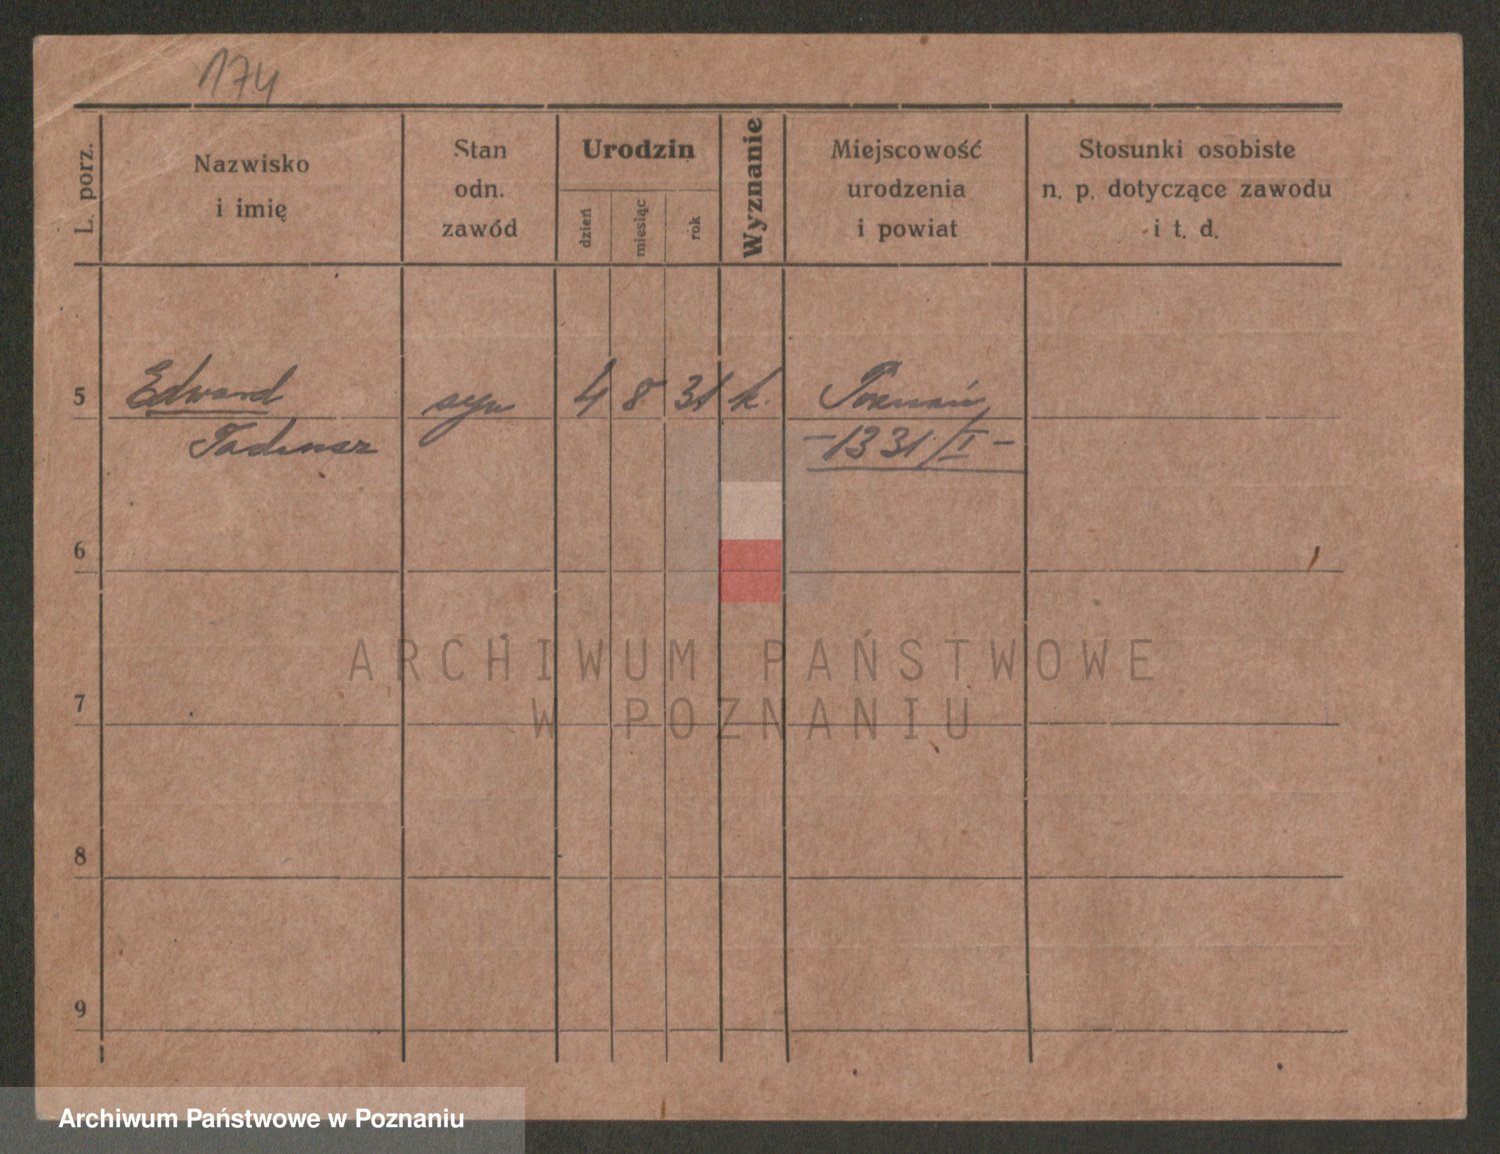 174
L. porz.
Nazwisko
i imię
Stan
odn.
zawód
Urodzin
dzień
miesiąc
rok
Wyznanie
Miejscowość
urodzenia
i powiat
Stosunki osobiste
n. p. dotyczące zawodu
i t. d.
5 Edward syn 4 8 31 k. Poznań
-1331/I-
6
7
8
9
ARCHIWUM PAŃSTWOWE
W POZNANIU
Archiwum Państwowe w Poznaniu